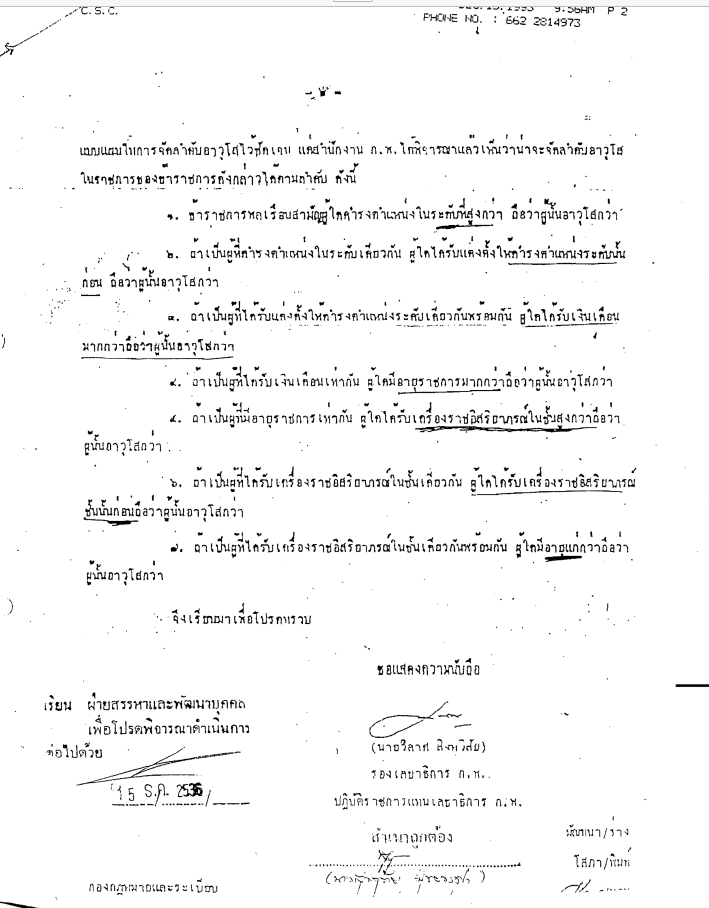 C.S.C.
1993 9:56AM P 2
PHONE NO. : 662 2814973
- ๒ -
แบบแผนในการจัดลำดับอาวุโสไว้ชัดเจน แต่สำนักงาน ก.พ. ได้พิจารณาแล้วเห็นว่าน่าจะจัดลำดับอาวุโส
ในราชการของข้าราชการดังกล่าวได้ตามลำดับ ดังนี้
๑. ข้าราชการพลเรือนสามัญผู้ใดดำรงตำแหน่งในระดับที่สูงกว่า ถือว่าผู้นั้นอาวุโสกว่า
๒. ถ้าเป็นผู้ที่ดำรงตำแหน่งในระดับเดียวกัน ผู้ใดได้รับแต่งตั้งให้ดำรงตำแหน่งระดับนั้น
ก่อน ถือว่าผู้นั้นอาวุโสกว่า
๓. ถ้าเป็นผู้ที่ได้รับแต่งตั้งให้ดำรงตำแหน่งระดับเดียวกันพร้อมกัน ผู้ใดได้รับเงินเดือน
มากกว่าถือว่าผู้นั้นอาวุโสกว่า
๔. ถ้าเป็นผู้ที่ได้รับเงินเดือนเท่ากัน ผู้ใดมีอายุราชการมากกว่าถือว่าผู้นั้นอาวุโสกว่า
๕. ถ้าเป็นผู้ที่มีอายุราชการเท่ากัน ผู้ใดได้รับเครื่องราชอิสริยาภรณ์ในชั้นสูงกว่าถือว่า
ผู้นั้นอาวุโสกว่า
๖. ถ้าเป็นผู้ที่ได้รับเครื่องราชอิสริยาภรณ์ในชั้นเดียวกัน ผู้ใดได้รับเครื่องราชอิสริยาภรณ์
ชั้นนั้นก่อนถือว่าผู้นั้นอาวุโสกว่า
๗. ถ้าเป็นผู้ที่ได้รับเครื่องราชอิสริยาภรณ์ในชั้นเดียวกันพร้อมกัน ผู้ใดมีอายุแก่กว่าถือว่า
ผู้นั้นอาวุโสกว่า
จึงเรียนมาเพื่อโปรดทราบ
ขอแสดงความนับถือ
เรียน ฝ่ายสรรหาและพัฒนาบุคคล
เพื่อโปรดพิจารณาดำเนินการ
ต่อไปด้วย
15 ธ.ค. 2536
(นายวิลาศ สิงหวิสัย)
รองเลขาธิการ ก.พ.
ปฏิบัติราชการแทนเลขาธิการ ก.พ.
สำเนาถูกต้อง
พัฒนา/ร่าง
โสภา/พิมพ์
กองกฎหมายและระเบียบ